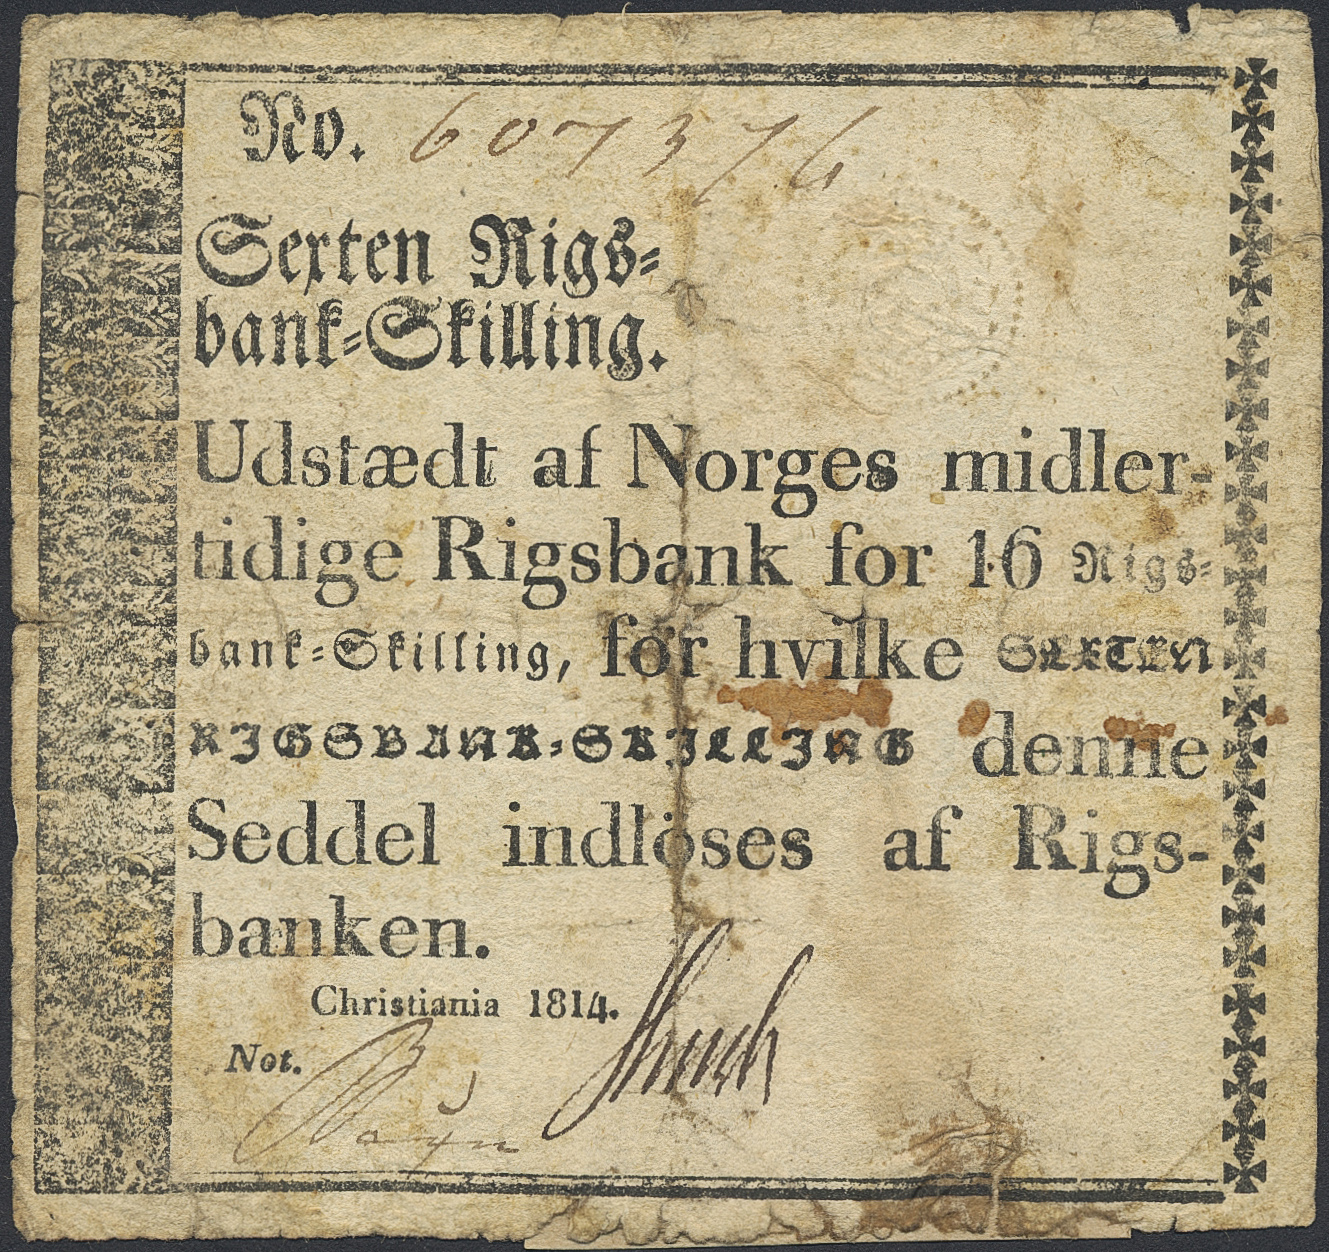 No. 607376
Sexten Rigs=
bank=Skilling.
Udstædt af Norges midler-
tidige Rigsbank for 16 Rigs=
bank=Skilling, for hvilke SEXTEN
RIGSBANK=SKILLING denne
Seddel indlöses af Rigs-
banken.
Christiania 1814.
Not.